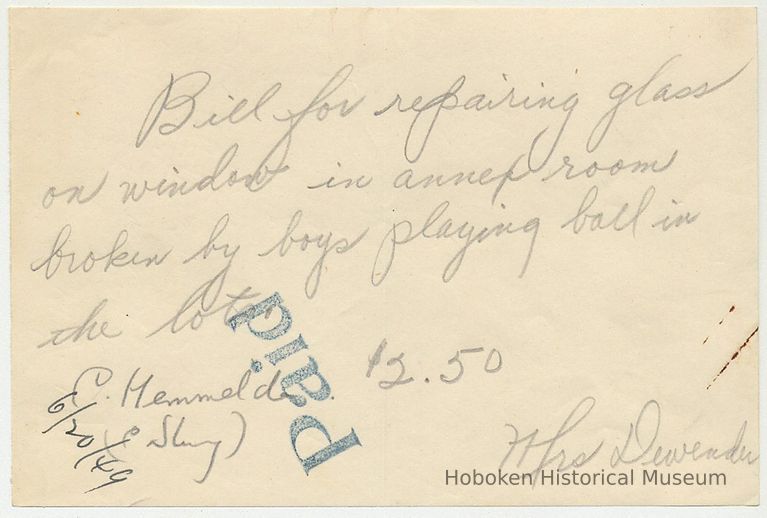 Bill for repairing glass
on window in annex room
broken by boys playing ball in
the lot.
Paid
12.50
C. Hemmelda
6/20/49
Mrs Dewender
Hoboken Historical Museum